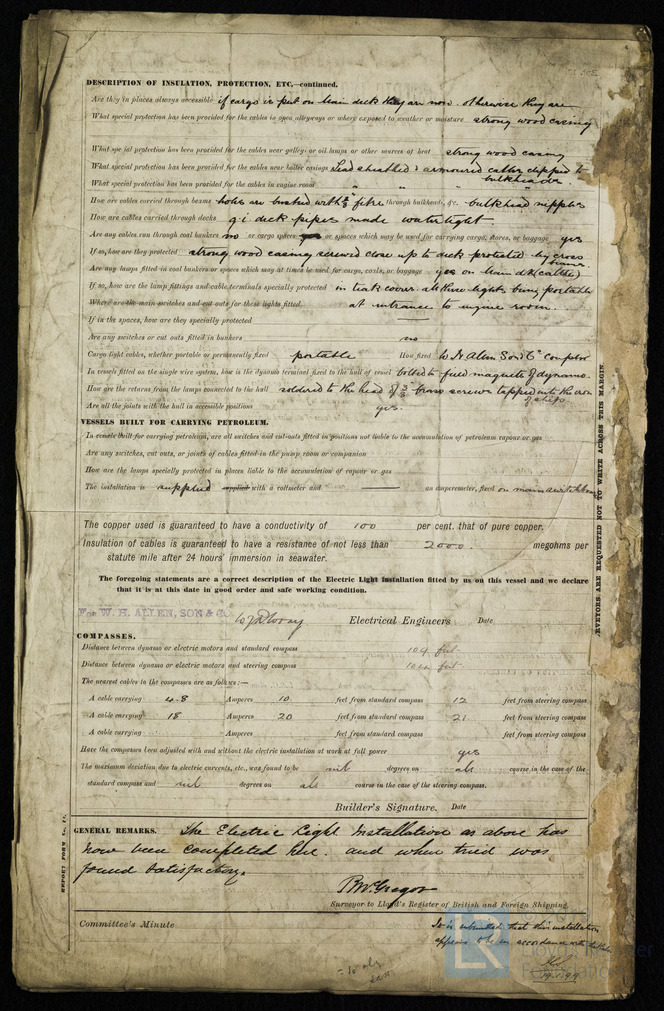 DESCRIPTION OF INSULATION, PROTECTION, ETC,—continued.
Are they in places always accessible if cargo is put on Main deck they are now. otherwise they are
What special protection has been provided for the cables in open alleyways or where exposed to weather or moisture strong wood casing
What special protection has been provided for the cables near galley or oil lamps or other sources of heat strong wood casing
What special protection has been provided for the cables near boiler casings Lead sheathed & armoured cables clipped to
bulkheads.
What special protection has been provided for the cables in engine room " " "
How are cables carried through beams holes are bushed with fibre through bulkheads, &c. bulkhead nipples
How are cables carried through decks g i deck pipes made watertight
Are any cables run through coal bunkers no or cargo spaces yes or spaces which may be used for carrying cargo, stores, or baggage yes
If so, how are they protected strong wood casing screwed close up to deck protected by cross
Are any lamps fitted in coal bunkers or spaces which may at times be used for cargo, coals, or baggage yes on Main dk (cattle)
If so, how are the lamp fittings and cable terminals specially protected in teak covers all these lights being portable
Where are the main switches and cut outs for these lights fitted. at entrance to engine room.
If in the spaces, how are they specially protected —
Are any switches or cut outs fitted in bunkers no
Cargo light cables, whether portable or permanently fixed portable How fixed W. H. Allen Son & Co
In vessels fitted on the single wire system, how is the dynamo terminal fixed to the hull of vessel bolted to fixed magnets of dynamo.
How are the returns from the lamps connected to the hull soldered to the head of 3/8 brass screws tapped into the iron
of ship.
Are all the joints with the hull in accessible positions yes.
VESSELS BUILT FOR CARRYING PETROLEUM.
In vessels built for carrying petroleum, are all switches and cut-outs fitted in positions not liable to the accumulation of petroleum vapour or gas
Are any switches, cut outs, or joints of cables fitted in the pump room or companion
How are the lamps specially protected in places liable to the accumulation of vapour or gas
The installation is supplied supplied with a voltmeter and — an amperemeter, fixed on main switchboard
The copper used is guaranteed to have a conductivity of 100 per cent. that of pure copper.
Insulation of cables is guaranteed to have a resistance of not less than 2000. megohms per
statute mile after 24 hours' immersion in seawater.
The foregoing statements are a correct description of the Electric Light installation fitted by us on this vessel and we declare
that it is at this date in good order and safe working condition.
FOR W. H. ALLEN, SON & Co. Electrical Engineers Date
COMPASSES.
Distance between dynamo or electric motors and standard compass 104 feet
Distance between dynamo or electric motors and steering compass feet
The nearest cables to the compasses are as follows:—
A cable carrying 4.8 Amperes 10 feet from standard compass 12 feet from steering compass
A cable carrying 18 Amperes 20 feet from standard compass 21 feet from steering compass
A cable carrying Amperes feet from standard compass feet from steering compass
Have the compasses been adjusted with and without the electric installation at work at full power yes
The maximum deviation due to electric currents, etc., was found to be nil degrees on all course in the case of the
standard compass and nil degrees on all course in the case of the steering compass.
Builder's Signature. Date
GENERAL REMARKS. The Electric Light Installation as above has
now been completed here. and when tried was
found satisfactory.
R McGregor
Surveyor to Lloyd's Register of British and Foreign Shipping.
Committee's Minute
It is submitted that this installation
appears to be in accordance with
19.1.99
REPORT FORM No.
SURVEYORS ARE REQUESTED NOT TO WRITE ACROSS THIS MARGIN.